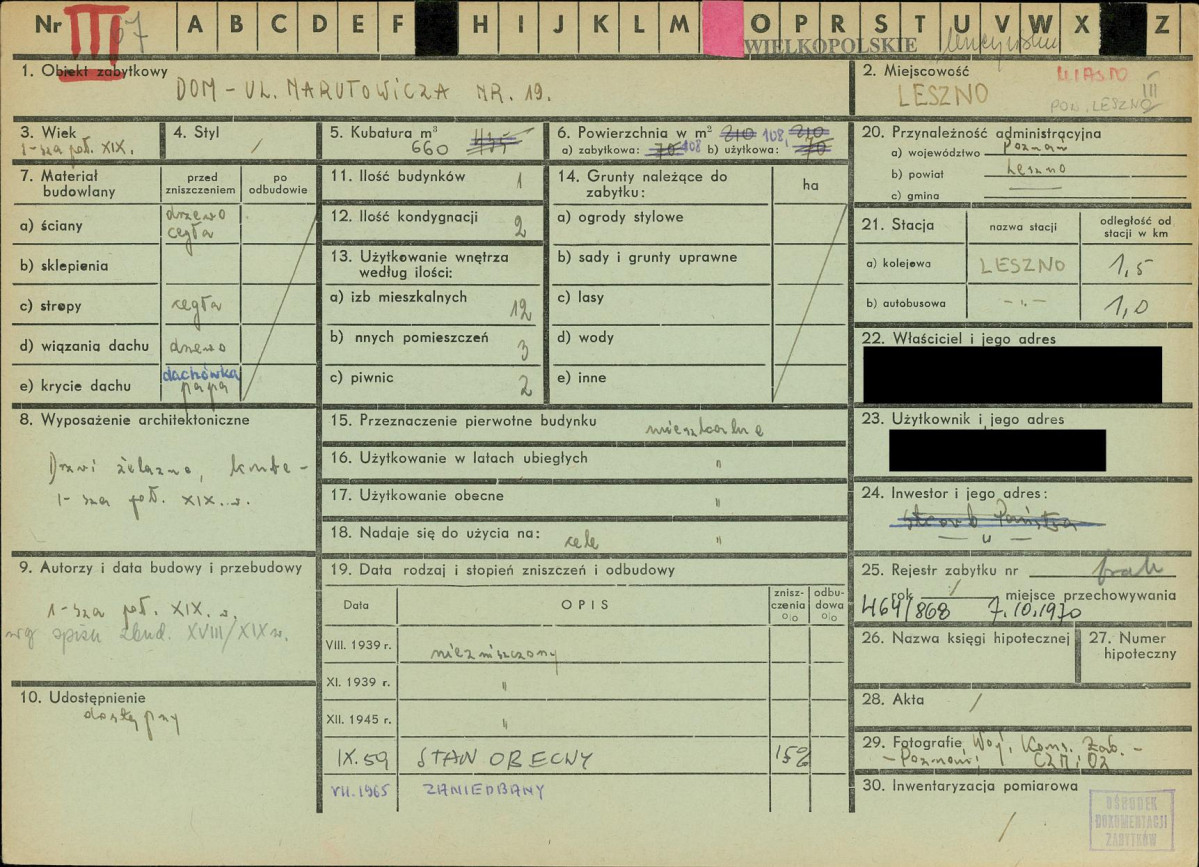 Nr III 67 A B C D E F H I J K L M O P R S T U V W X Z
WIELKOPOLSKIE
1. Obiekt zabytkowy
DOM - UL. NARUTOWICZA NR. 19.
2. Miejscowość MIASTO
LESZNO III
POW. LESZNO
3. Wiek
1-sza poł. XIX.
4. Styl
/
5. Kubatura m³
660
6. Powierzchnia w m² 210 108, 210
a) zabytkowa: 70 108 b) użytkowa: 70
20. Przynależność administracyjna
a) województwo Poznań
b) powiat Leszno
c) gmina
7. Materiał budowlany
przed zniszczeniem
po odbudowie
a) ściany drzewo
cegła
b) sklepienia
c) stropy cegła
d) wiązania dachu drzewo
e) krycie dachu dachówka
papa
11. Ilość budynków 1
12. Ilość kondygnacji 2
13. Użytkowanie wnętrza
według ilości:
a) izb mieszkalnych 12
b) nnych pomieszczeń 3
c) piwnic 2
14. Grunty należące do
zabytku:
ha
a) ogrody stylowe
b) sady i grunty uprawne
c) lasy
d) wody
e) inne
21. Stacja
nazwa stacji
odległość od
stacji w km
a) kolejowa LESZNO 1,5
b) autobusowa -„- 1,0
22. Właściciel i jego adres
23. Użytkownik i jego adres
24. Inwestor i jego adres:
Skarb Państwa
— „ —
8. Wyposażenie architektoniczne
Drzwi żelazne, kute -
1-sza poł. XIX w.
15. Przeznaczenie pierwotne budynku mieszkalne
16. Użytkowanie w latach ubiegłych "
17. Użytkowanie obecne "
18. Nadaje się do użycia na: cele "
9. Autorzy i data budowy i przebudowy
1-sza poł. XIX. w.
wg spisu zbud. XVIII/XIX w.
19. Data rodzaj i stopień zniszczeń i odbudowy
Data
OPIS
znisz-
czenia
o|o
odbu-
dowa
o|o
VIII. 1939 r. niezniszczony
XI. 1939 r. "
XII. 1945 r. "
IX.59 STAN OBECNY 15%
VII.1965 ZANIEDBANY
10. Udostępnienie
dostępny
25. Rejestr zabytku nr brak
rok / miejsce przechowywania
464/868 7.10.1970
26. Nazwa księgi hipotecznej
27. Numer
hipoteczny
28. Akta /
29. Fotografie Woj. Kons. Zab. -
- Poznań; CZM i OZ
30. Inwentaryzacja pomiarowa
/
OŚRODEK
DOKUMENTACJI
ZABYTKÓW